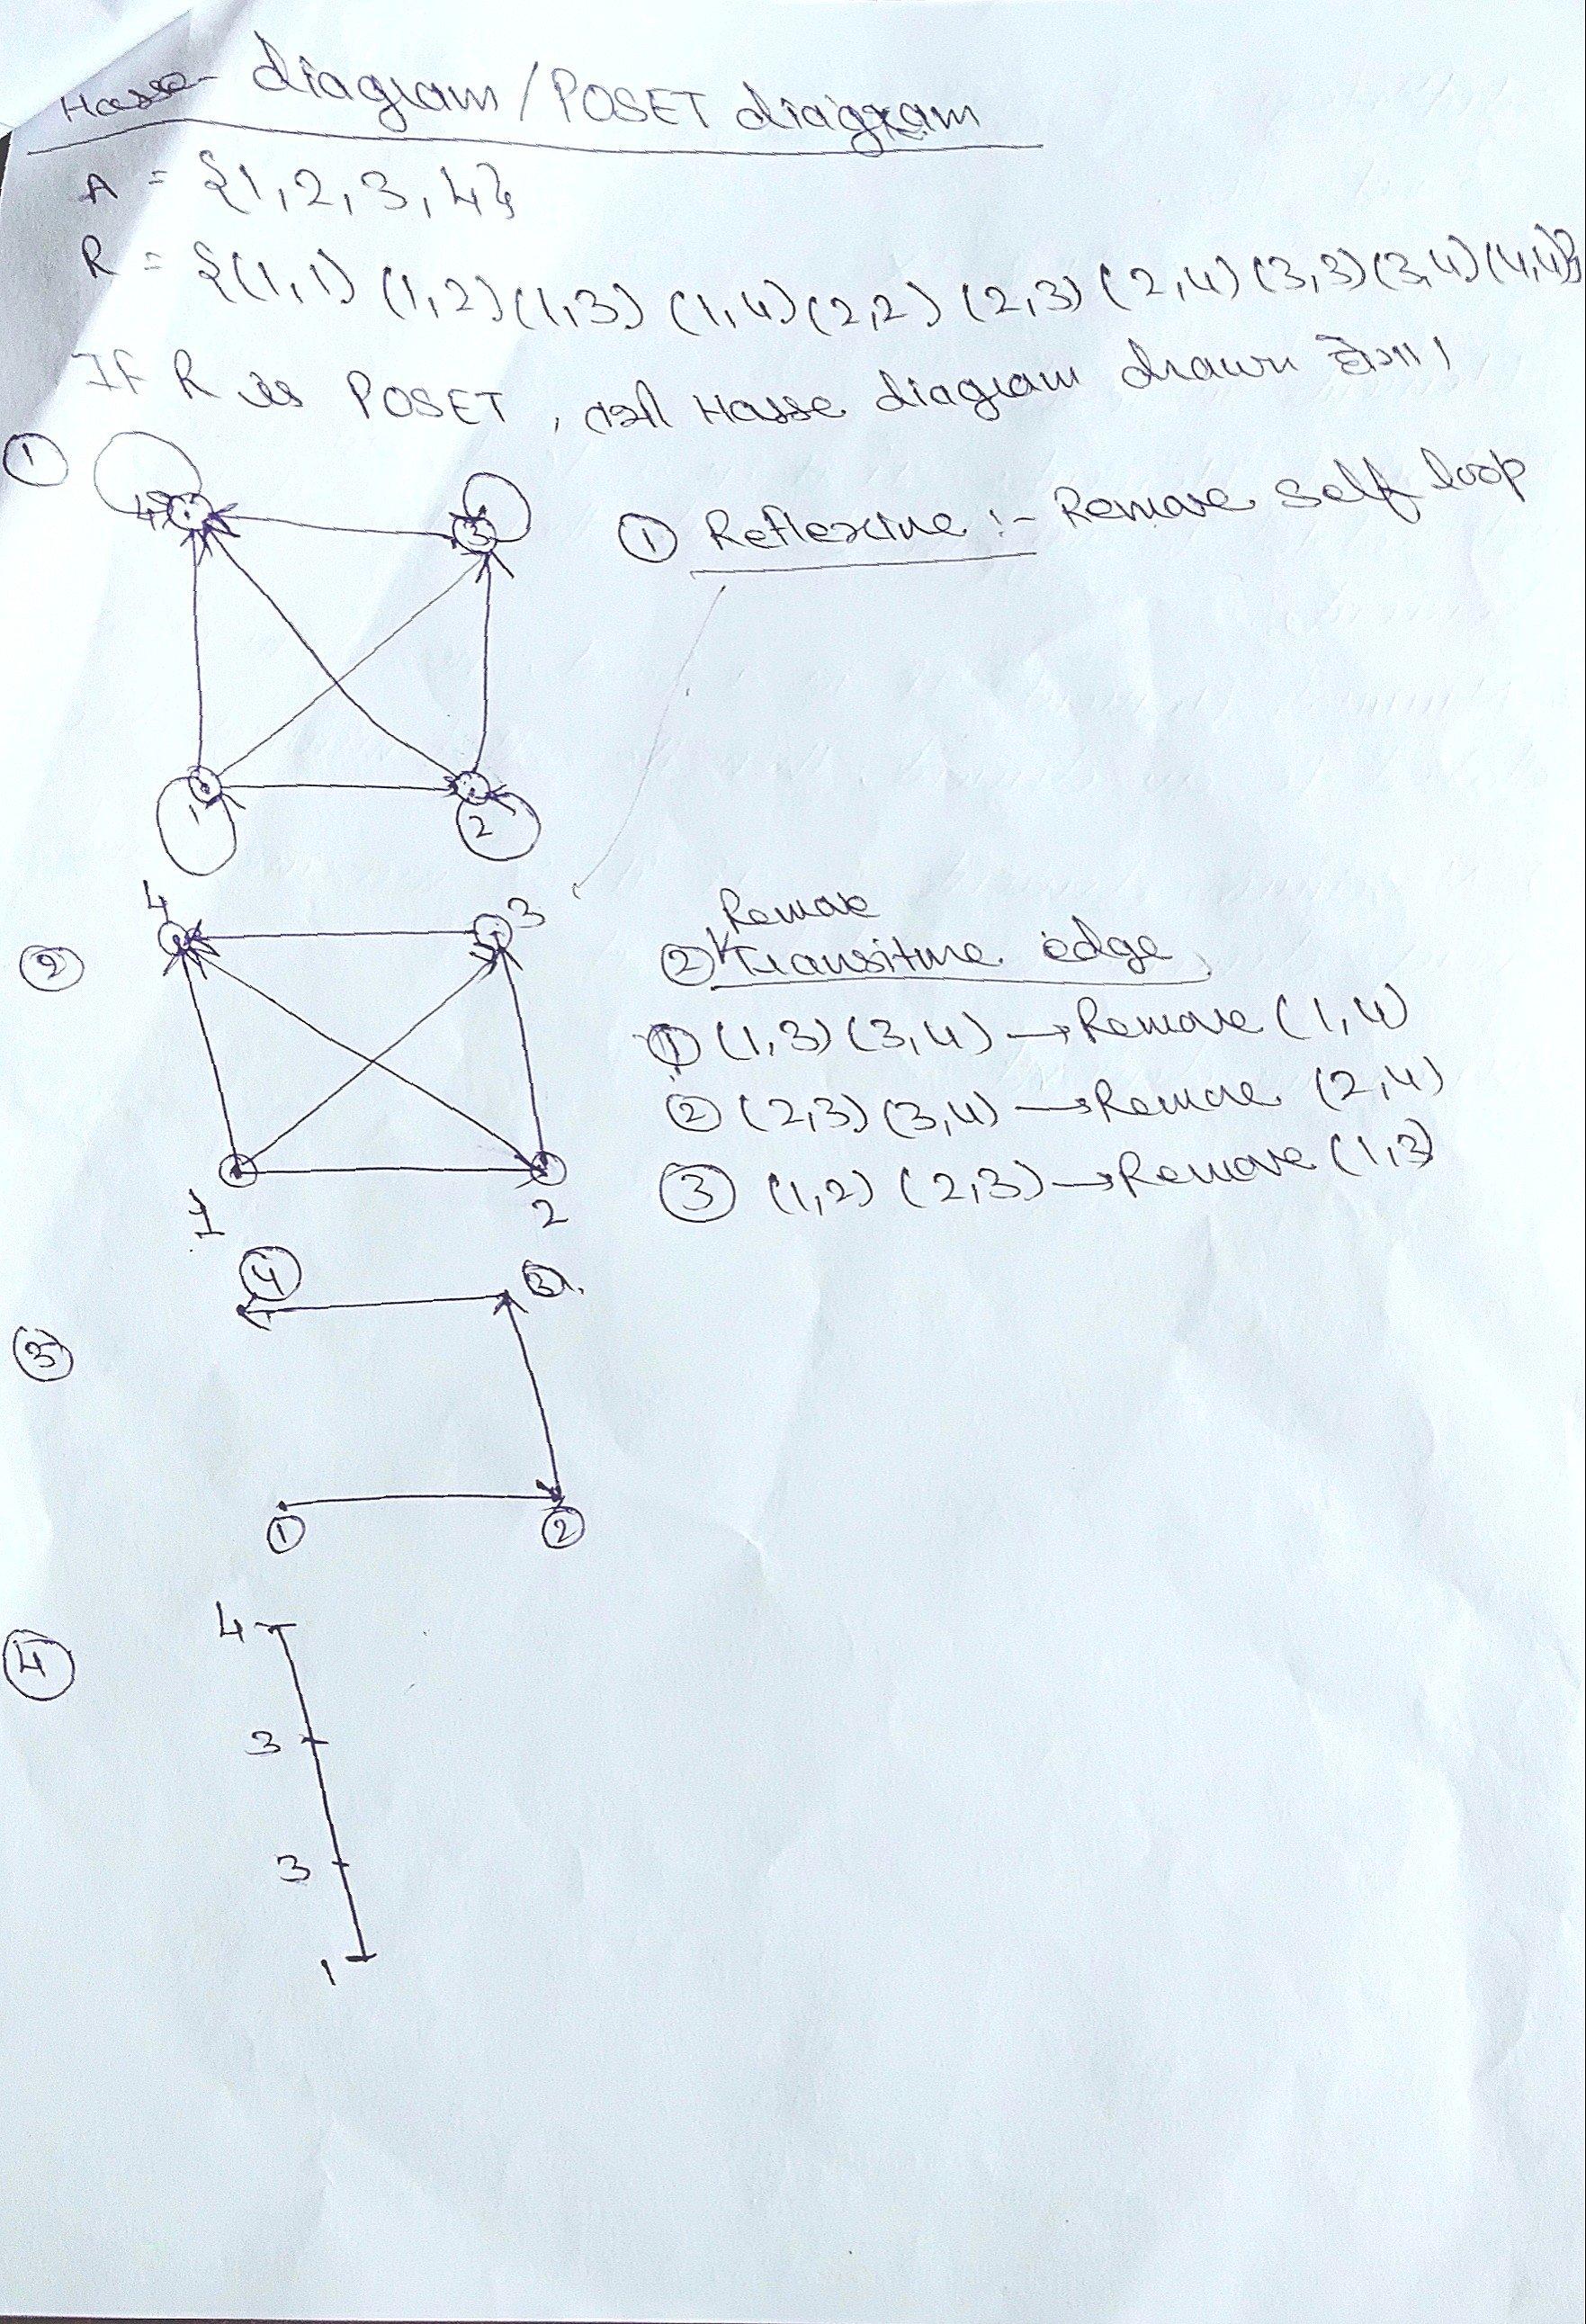 Hasse diagram / POSET diagram
A = {1,2,3,4}
R = {(1,1) (1,2) (1,3) (1,4) (2,2) (2,3) (2,4) (3,3) (3,4) (4,4)}
If R is POSET, तभी Hasse diagram drawn होगा।
①
4 3
① Reflexive :- Remove self loop
1 2
②
4 3
Remove
② Transitive edge
① (1,3) (3,4) → Remove (1,4)
② (2,3) (3,4) → Remove (2,4)
③ (1,2) (2,3) → Remove (1,3)
1 2
③
④ ③
① ②
④
4
3
3
1